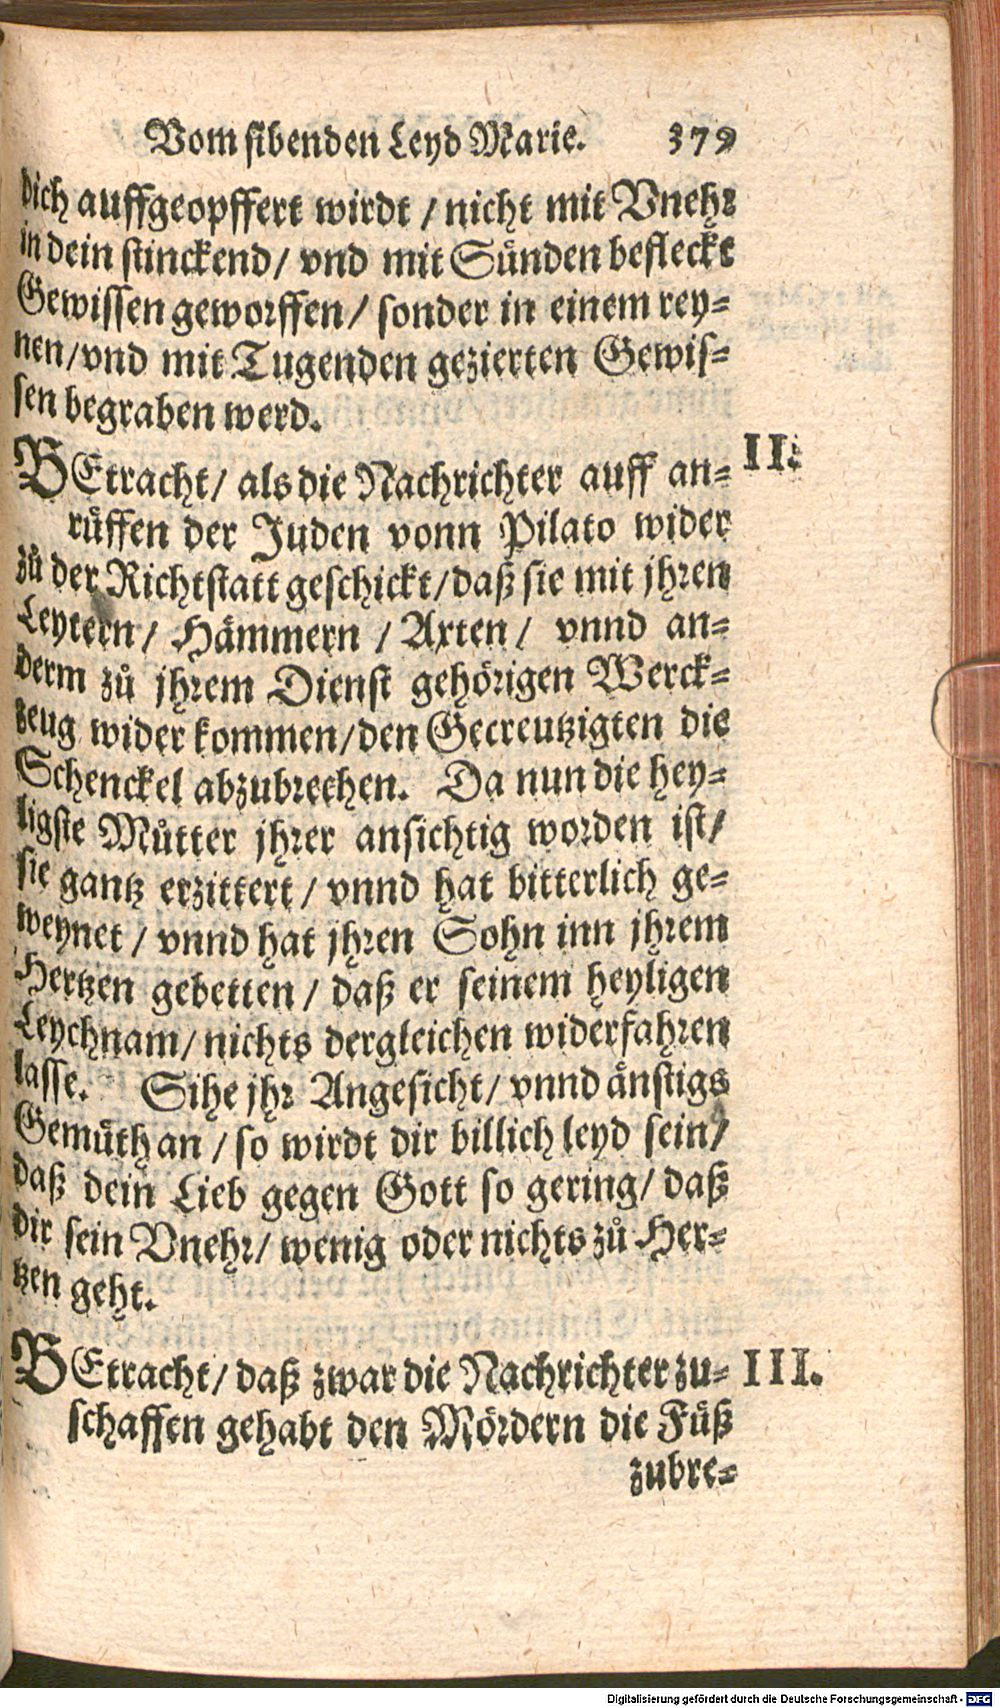 Vom sibenden Leyd Marie. 379
dich auffgeopffert wirdt / nicht mit Vnehr
in dein stinckend / vnd mit Sünden befleckt
Gewissen geworffen / sonder in einem rey-
nen / vnd mit Tugenden gezierten Gewis-
sen begraben werd.
BEtracht / als die Nachrichter auff an- II.
rüffen der Juden vonn Pilato wider
zů der Richtstatt geschickt / daß sie mit jhren
Leytern / Hämmern / Axten / vnnd an-
derm zů jhrem Dienst gehörigen Werck-
zeug wider kommen / den Gecreutzigten die
Schenckel abzubrechen. Da nun die hey-
ligste Můtter jhrer ansichtig worden ist /
sie gantz erzittert / vnnd hat bitterlich ge-
weynet / vnnd hat jhren Sohn inn jhrem
Hertzen gebetten / daß er seinem heyligen
Leychnam / nichts dergleichen widerfahren
lasse. Sihe jhr Angesicht / vnnd änstigs
Gemüth an / so wirdt dir billich leyd sein /
daß dein Lieb gegen Gott so gering / daß
dir sein Vnehr / wenig oder nichts zů Her-
tzen geht.
BEtracht / daß zwar die Nachrichter zu- III.
schaffen gehabt den Mördern die Füß
zubre-
Digitalisierung gefördert durch die Deutsche Forschungsgemeinschaft - DFG